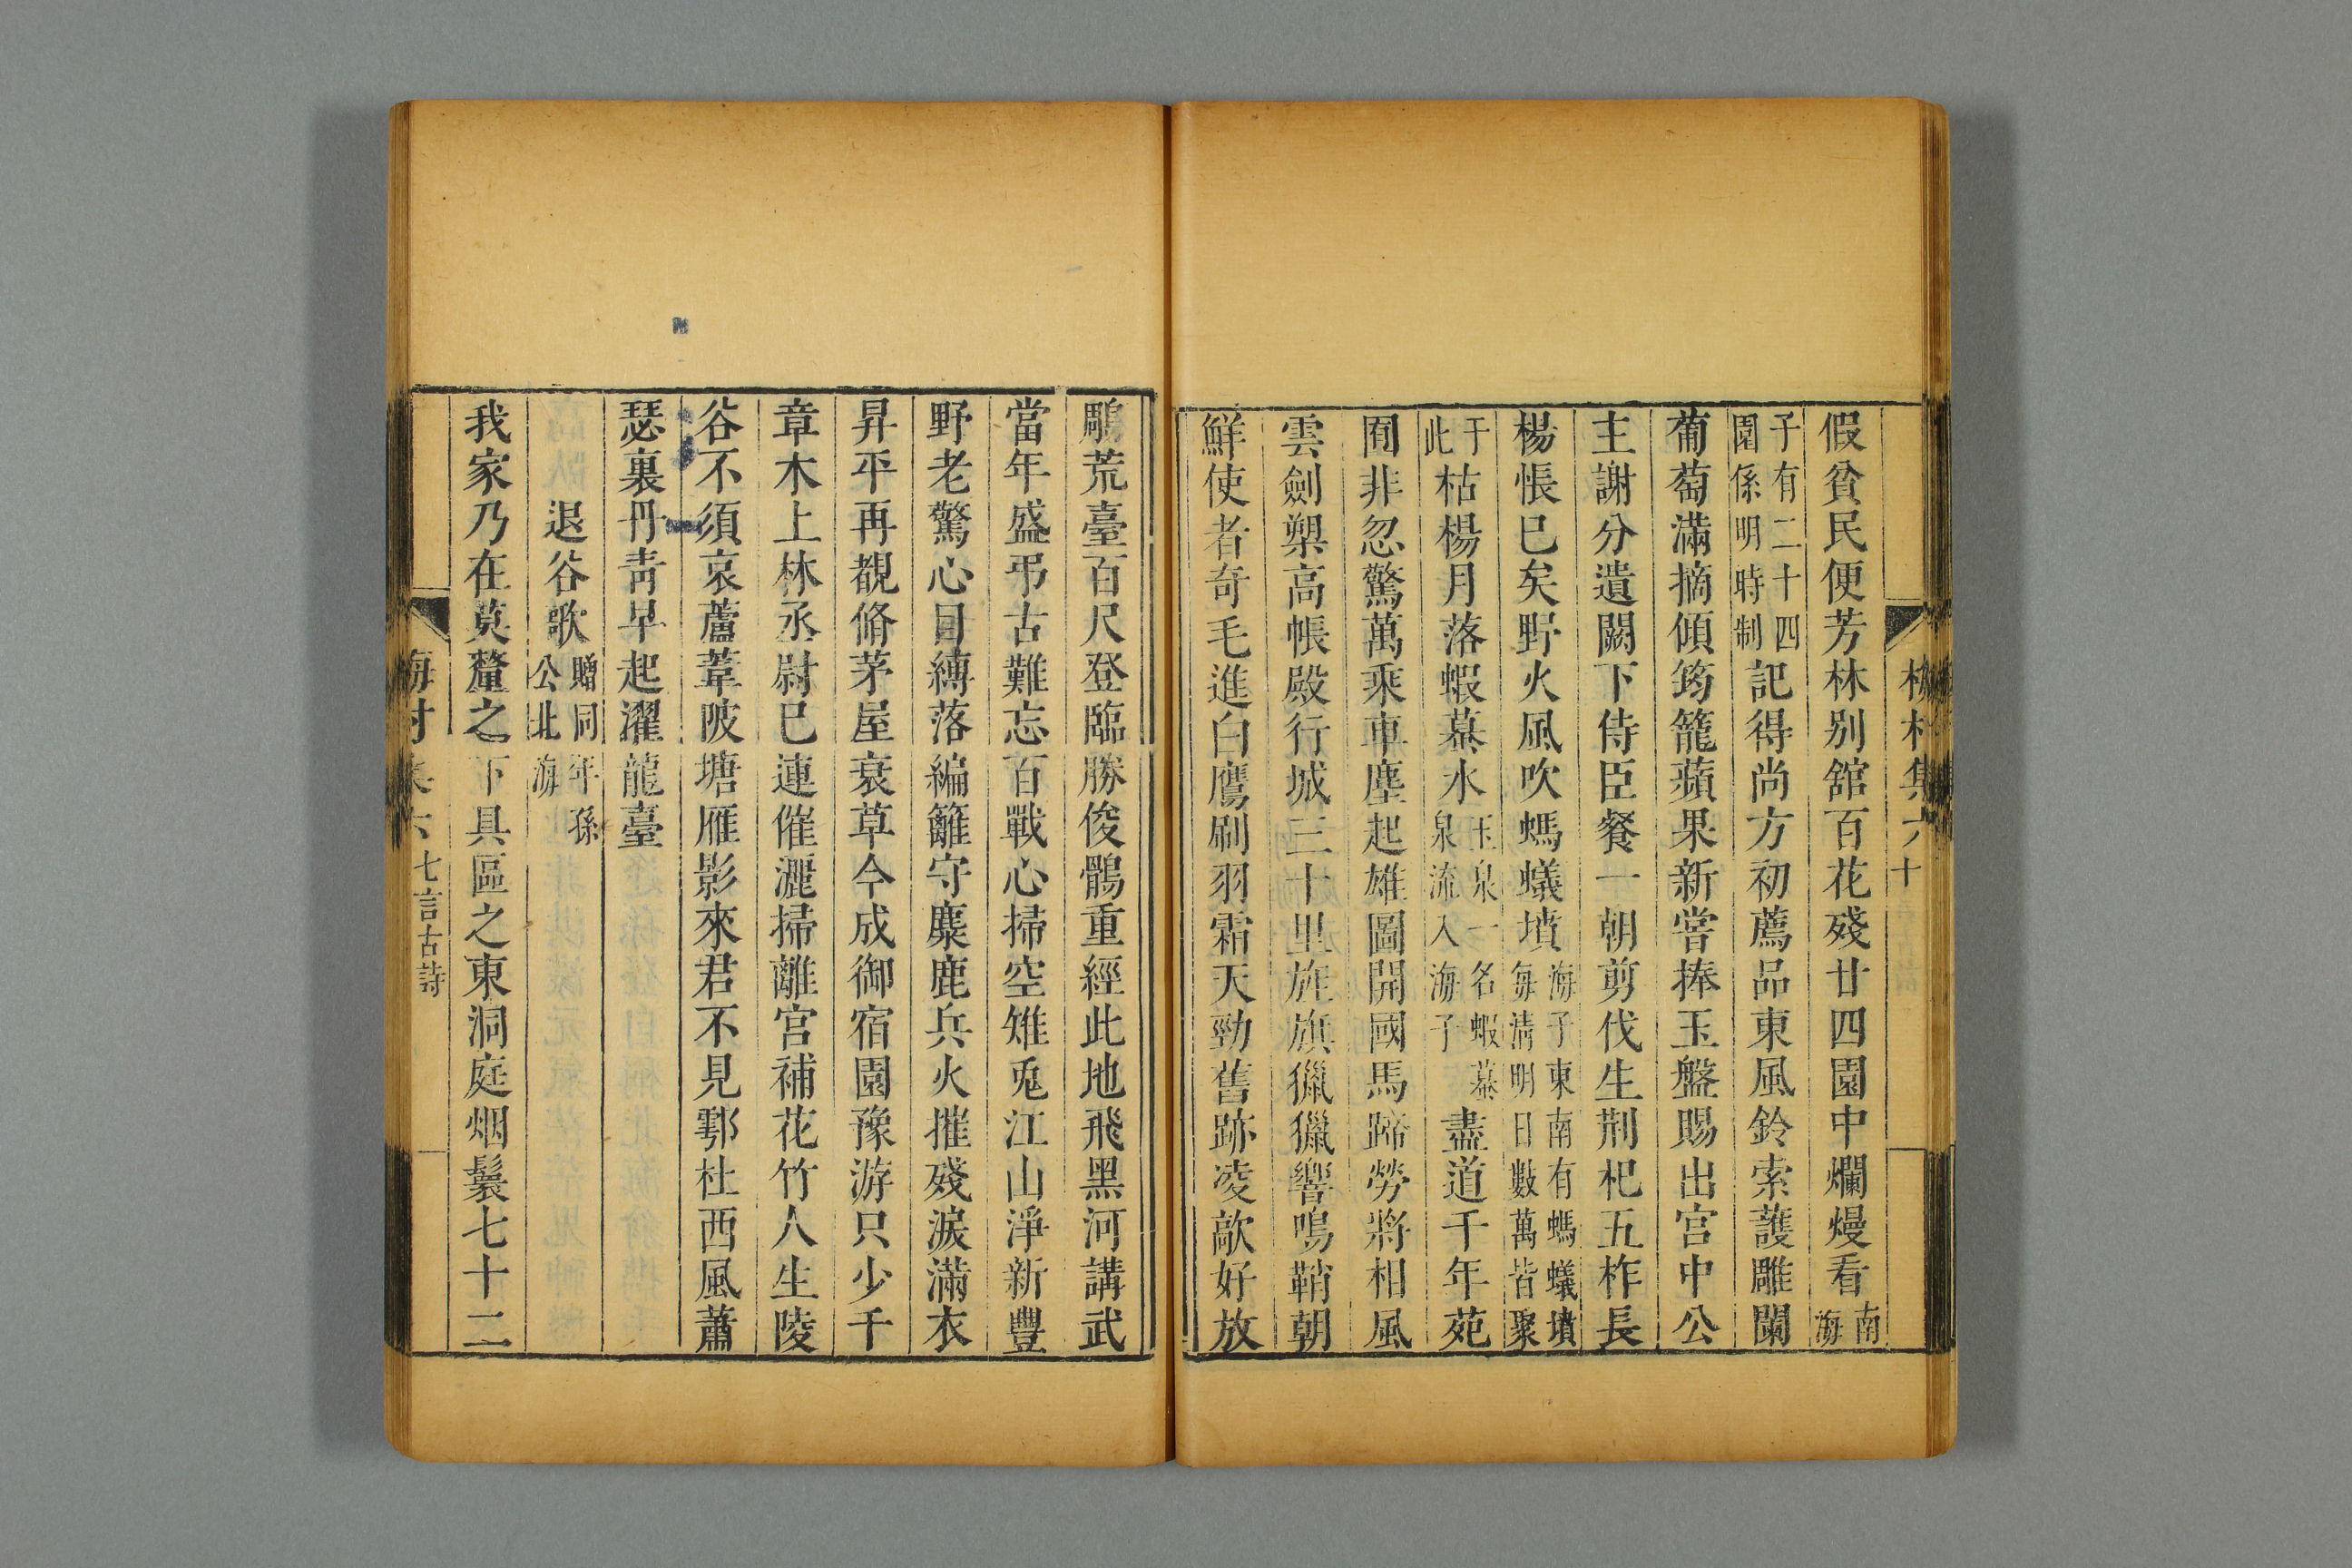 梅村集六 十
假貧民便芳林别舘百花殘廿四園中爛熳看南海
子有二十四園係明時制記得尚方初薦品東風鈴索護雕闌
葡萄滿摘傾筠籠蘋果新嘗捧玉盤賜出宫中公
主謝分遺闕下侍臣餐一朝剪伐生荆杞五柞長
楊悵已矣野火風吹螞蟻墳海子東南有螞蟻墳每淸明日數萬皆聚
于此枯楊月落蝦蟇水玉泉一名蝦蟇泉流入海子盡道千年苑
囿非忽驚萬乘車塵起雄圖開國馬蹄勞將相風
雲劍槊高帳殿行城三十里旌旗獵獵響鳴鞘朝
鮮使者奇毛進白鷹刷羽霜天勁舊跡凌歊好放
鵰荒臺百尺登臨勝俊鶻重經此地飛黑河講武
當年盛弔古難忘百戰心掃空雉兎江山淨新豐
野老驚心目縛落編籬守麋鹿兵火摧殘淚滿衣
昇平再覩脩茅屋衰草今成御宿園豫游只少千
章木上林丞尉已連催灑掃離宫補花竹人生陵
谷不須哀蘆葦陂塘雁影來君不見鄠杜西風蕭
瑟裏丹靑早起濯龍臺
退谷歌贈同年孫公北海
我家乃在莫釐之下具區之東洞庭烟鬟七十二
梅村集六 七言古詩